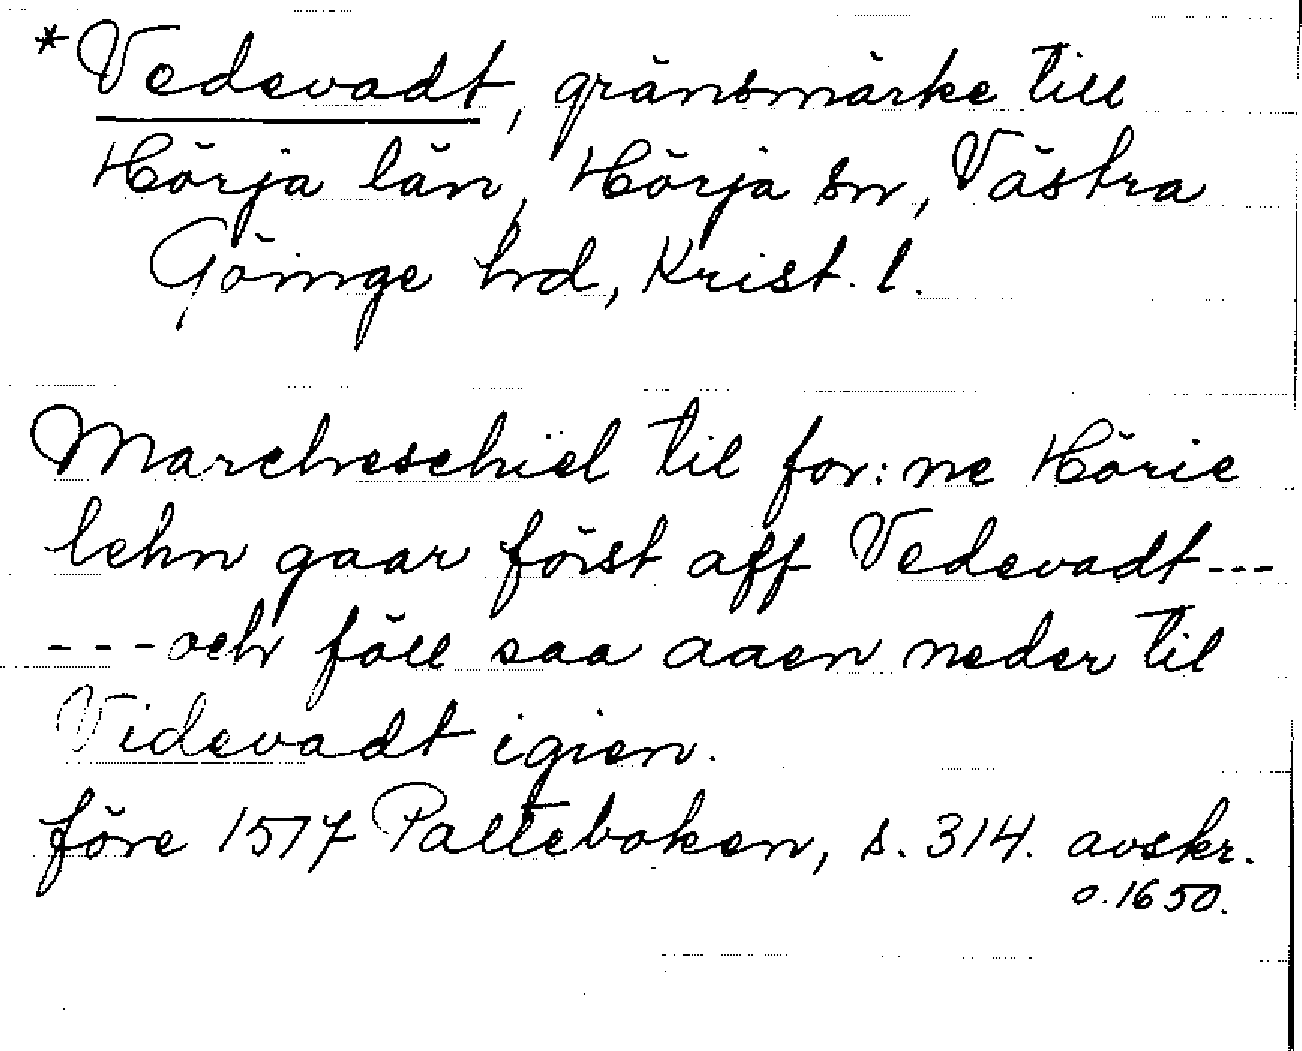 *Vedevadt, gränsmärke till
Hörja län, Hörja sn, Västra
Göinge hd, Krist. l.
Marcheschiel til for:ne Hörie
lehn gaar först aff Vedevadt ---
--- och föll saa aaen neder til
Videvadt igien.
före 1517 Palteboken, s. 314. avskr.
o. 1650.